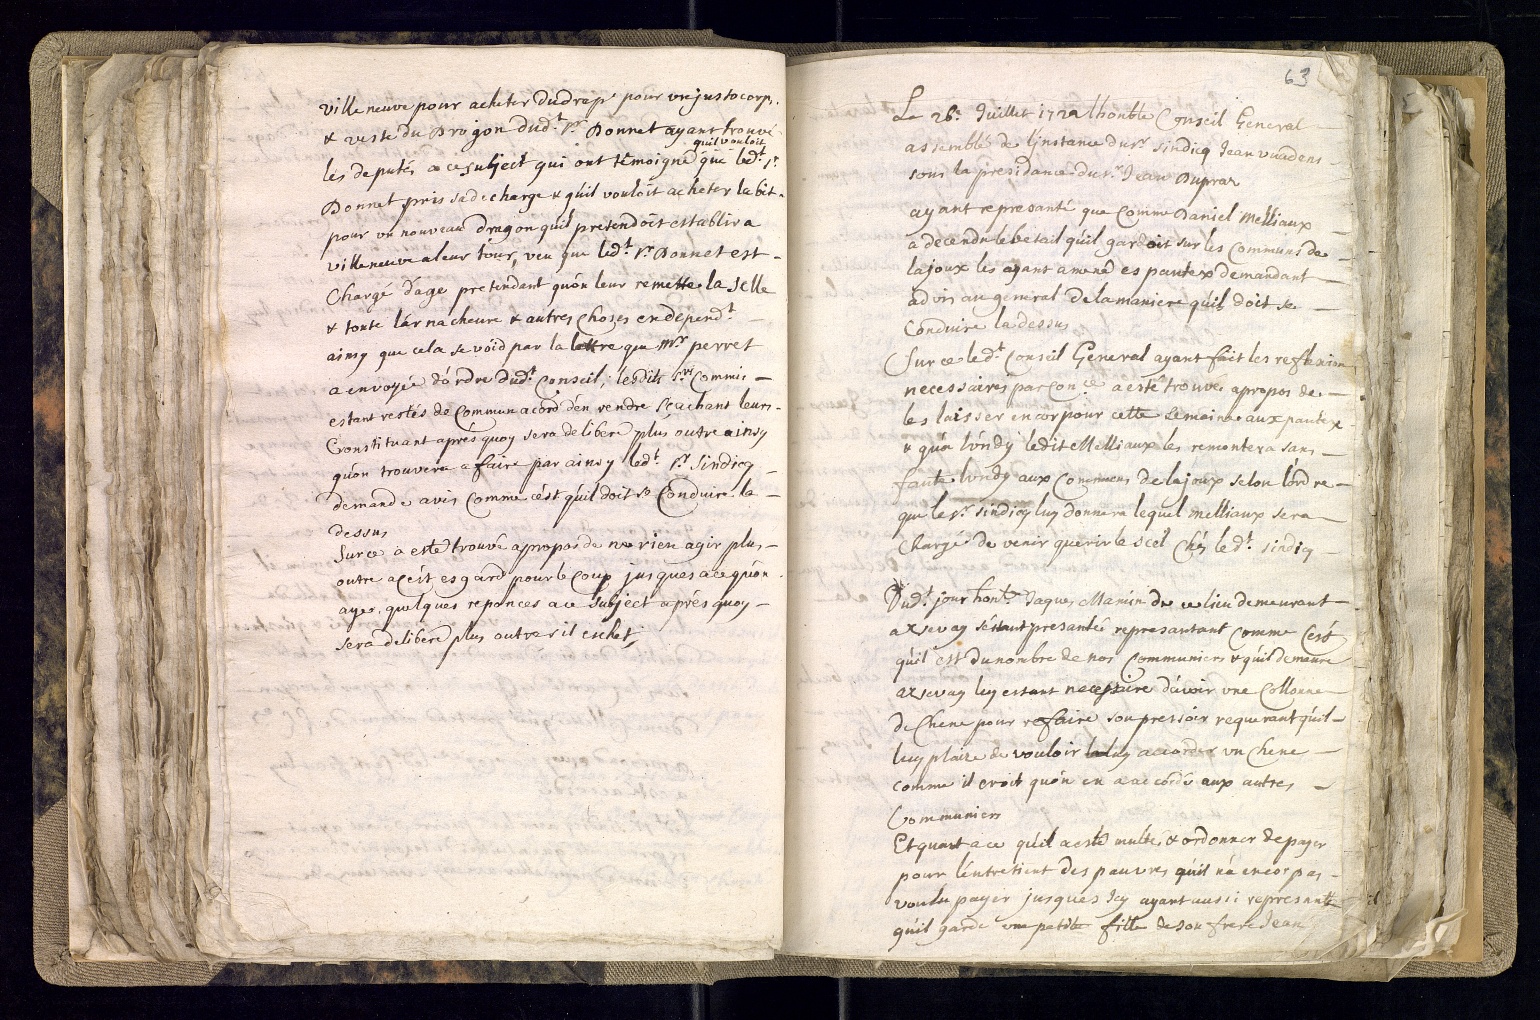 ville neuve pour acheter du drap pour un justocorps
& veste du Drogon dud.t s.r Donnet ayant trouvé
quil vouloit
les deputés a ce subject qui ont témoigné que led.t s.r
Donnet pris sa decharge & quil vouloit acheter la bét-
pour un nouveau dragon quil pretendoit establir a
villeneuve a leur tour, veu que led.t s.r Donnet est
Chargé d'age pretendant quón leur remette la selle
& toute lár nacheure & autres choses en depend.t
ainsy que cela se void par la lettre que Mr. perret
a envoyée dórdre dud.t Conseil; lesdits s.rs Commis
estant restés de Commun acord dén rendre seachant leurs
Constituant aprés quoy sera delibere plus outre ainsy
quón trouvera a faire par ainsy led.t s.r Sindicq
demande avis Comme cést quil doit se Conduire la
dessus
Sur ce a esté trouvé apropos de ne rien agir plus
outre a cét esgard pour le Coup jusques a ce quón
aye quelques reponces a ce subject aprés quoy
sera delibere plus outre sil eschet
63
Le 26.e Juillet 172 lhonble Conseil General
assemblé de l'instance du s.r Sindicq Jean vuadens
sous la presidance du s.r Jean Dupraz
ayant representé que Comme Daniel Melliaux
a decendu le betail quil gardoit sur les Communs de
lajoux les ayant amené es pautex demandant
advis au general de la maniere quil doit se
Conduire la dessus
Sur ce led.t Conseil General ayant fait les reflexion
necessaires par son a esté trouvé apropos de
les laisser encor pour cette semaine aux pautex
& quá lundy ledit Melliaux les remontera sans
faute lundy aux Communs de lajoux selon lórdre
que le s.r sindicq luy donnera lequel Melliaux sera
Chargé de venir querir le scel Chés led.t sindicq
Dud.t jour hon.ble Jaques Manin de ce lieu demeurant
a séstant presanté represantant Comme Cést
quil est du nombre de nos Communiers & quil demeure
a luy estant necessaire dávoir une Collonne
de Chene pour refaire son pressoir requerant quil
luy plaise de vouloir luy accorder un Chene
comme il croit quón en a accordé aux autres
Communiers
Et quant a ce quil a esté multé & ordonner de payer
pour léntretient des pauvres quil ná encor pas
voulu payer jusques Icy ayant aussi represanté
quil garde une petite fille de son frere Jean